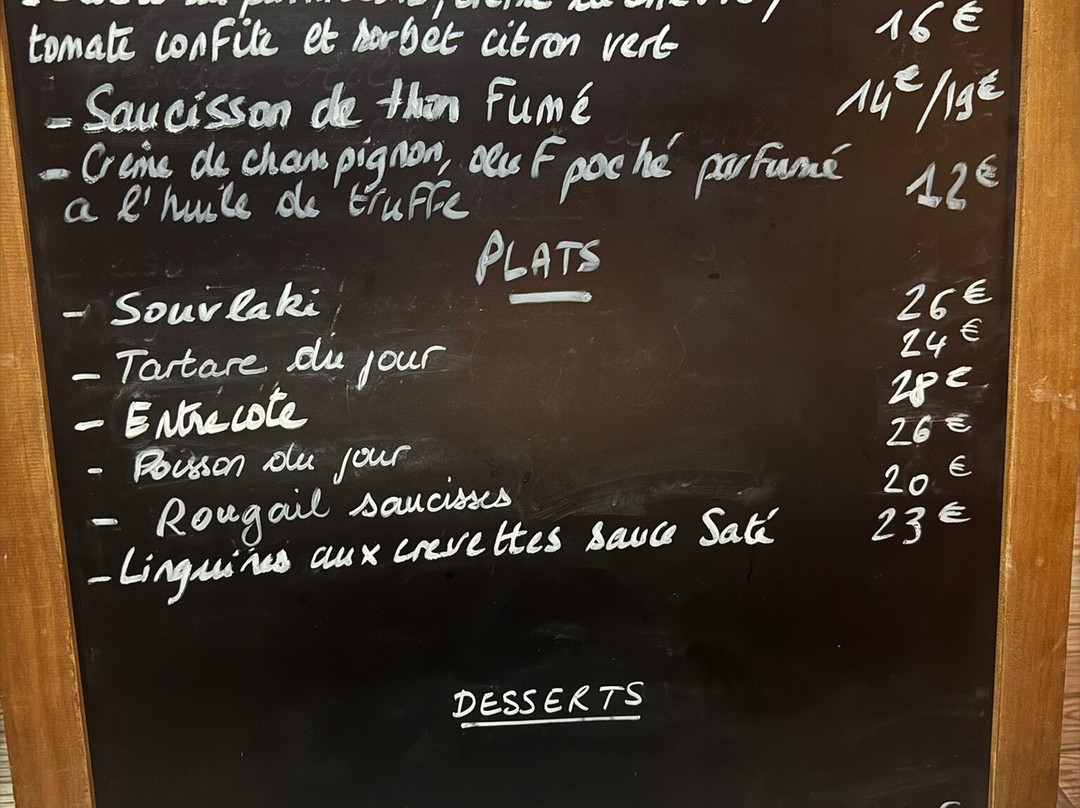 tomate confite et sorbet citron vert 16€
- Saucisson de thon Fumé 14€/19€
- Crème de champignon, œuf poché parfumé 12€
a l'huile de truffe
PLATS
- Souvlaki 26€
- Tartare du jour 24€
- Entrecote 28€
- Poisson du jour 26€
- Rougail saucisses 20€
- Linguines aux crevettes sauce Saté 23€
DESSERTS